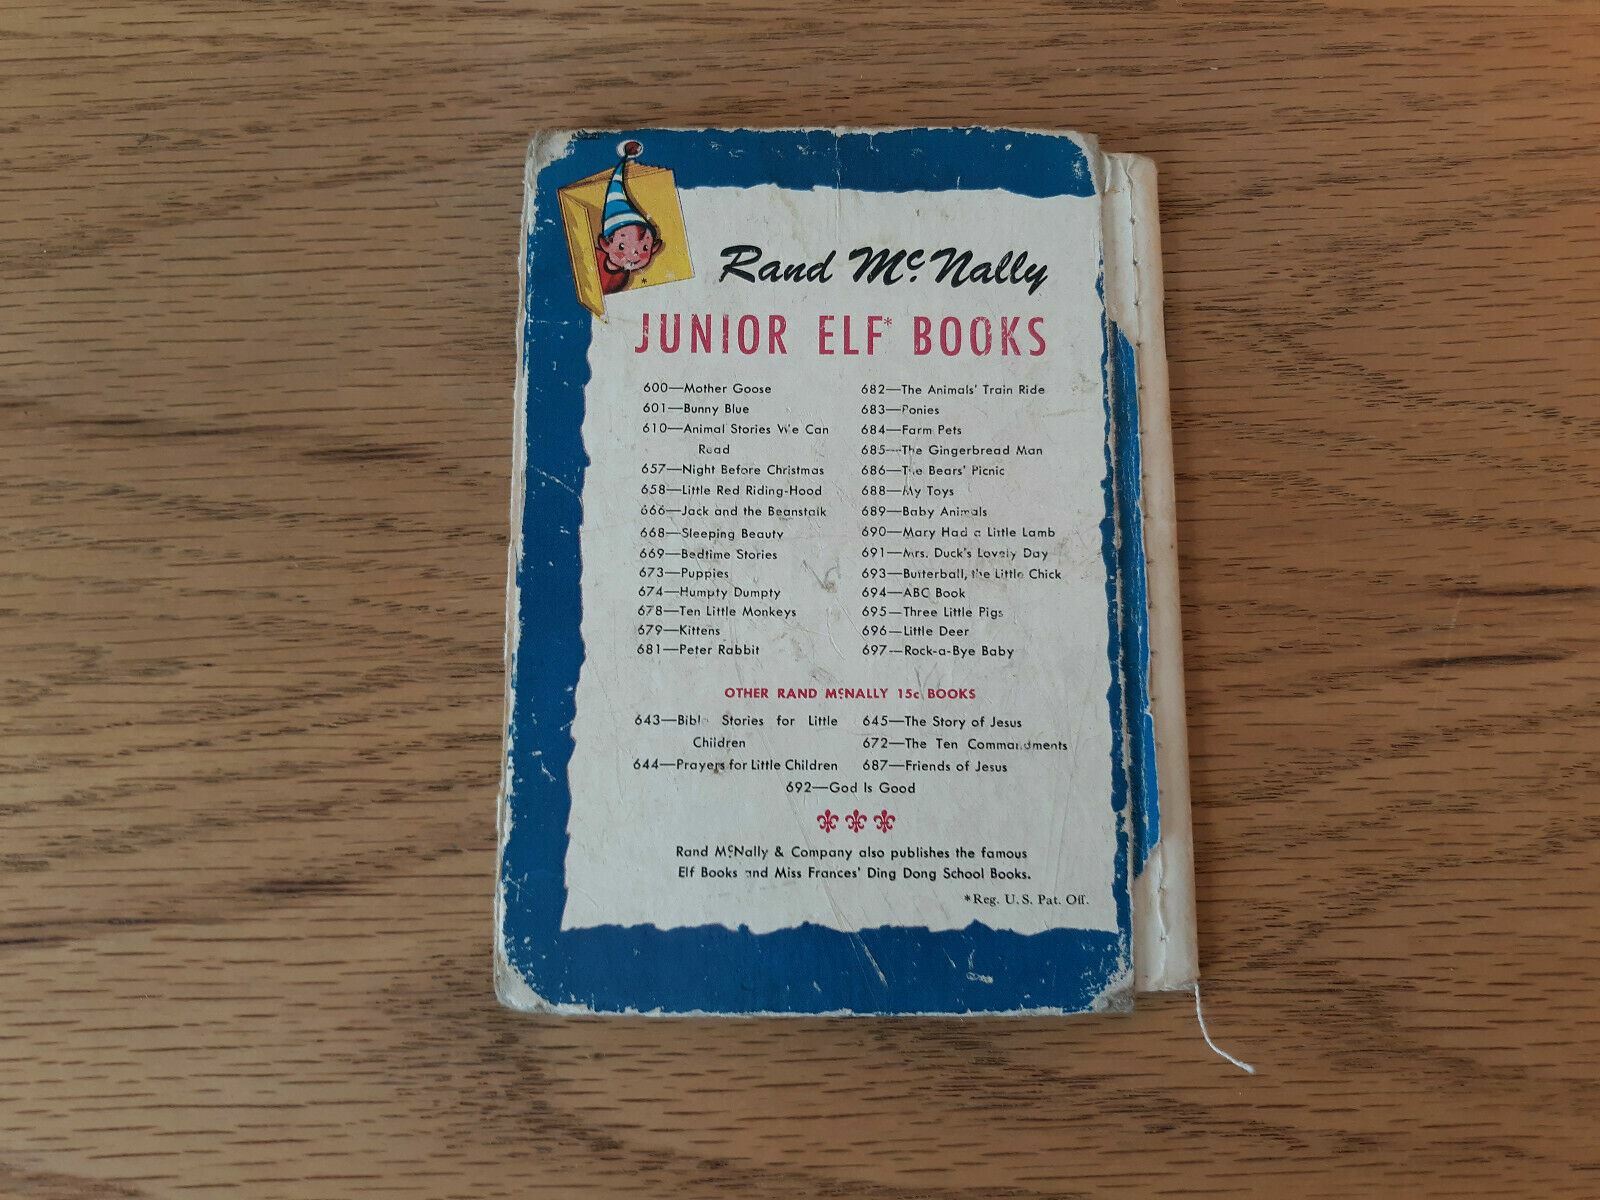 Rand McNally
JUNIOR ELF* BOOKS
600—Mother Goose
601—Bunny Blue
610—Animal Stories We Can
Read
657—Night Before Christmas
658—Little Red Riding-Hood
666—Jack and the Beanstalk
668—Sleeping Beauty
669—Bedtime Stories
673—Puppies
674—Humpty Dumpty
678—Ten Little Monkeys
679—Kittens
681—Peter Rabbit
682—The Animals' Train Ride
683—Ponies
684—Farm Pets
685—The Gingerbread Man
686—The Bears' Picnic
688—My Toys
689—Baby Animals
690—Mary Had a Little Lamb
691—Mrs. Duck's Lovely Day
693—Butterball, the Little Chick
694—ABC Book
695—Three Little Pigs
696—Little Deer
697—Rock-a-Bye Baby
OTHER RAND McNALLY 15c BOOKS
643—Bible Stories for Little
Children
644—Prayers for Little Children
645—The Story of Jesus
672—The Ten Commandments
687—Friends of Jesus
692—God Is Good
Rand McNally & Company also publishes the famous
Elf Books and Miss Frances' Ding Dong School Books.
*Reg. U. S. Pat. Off.